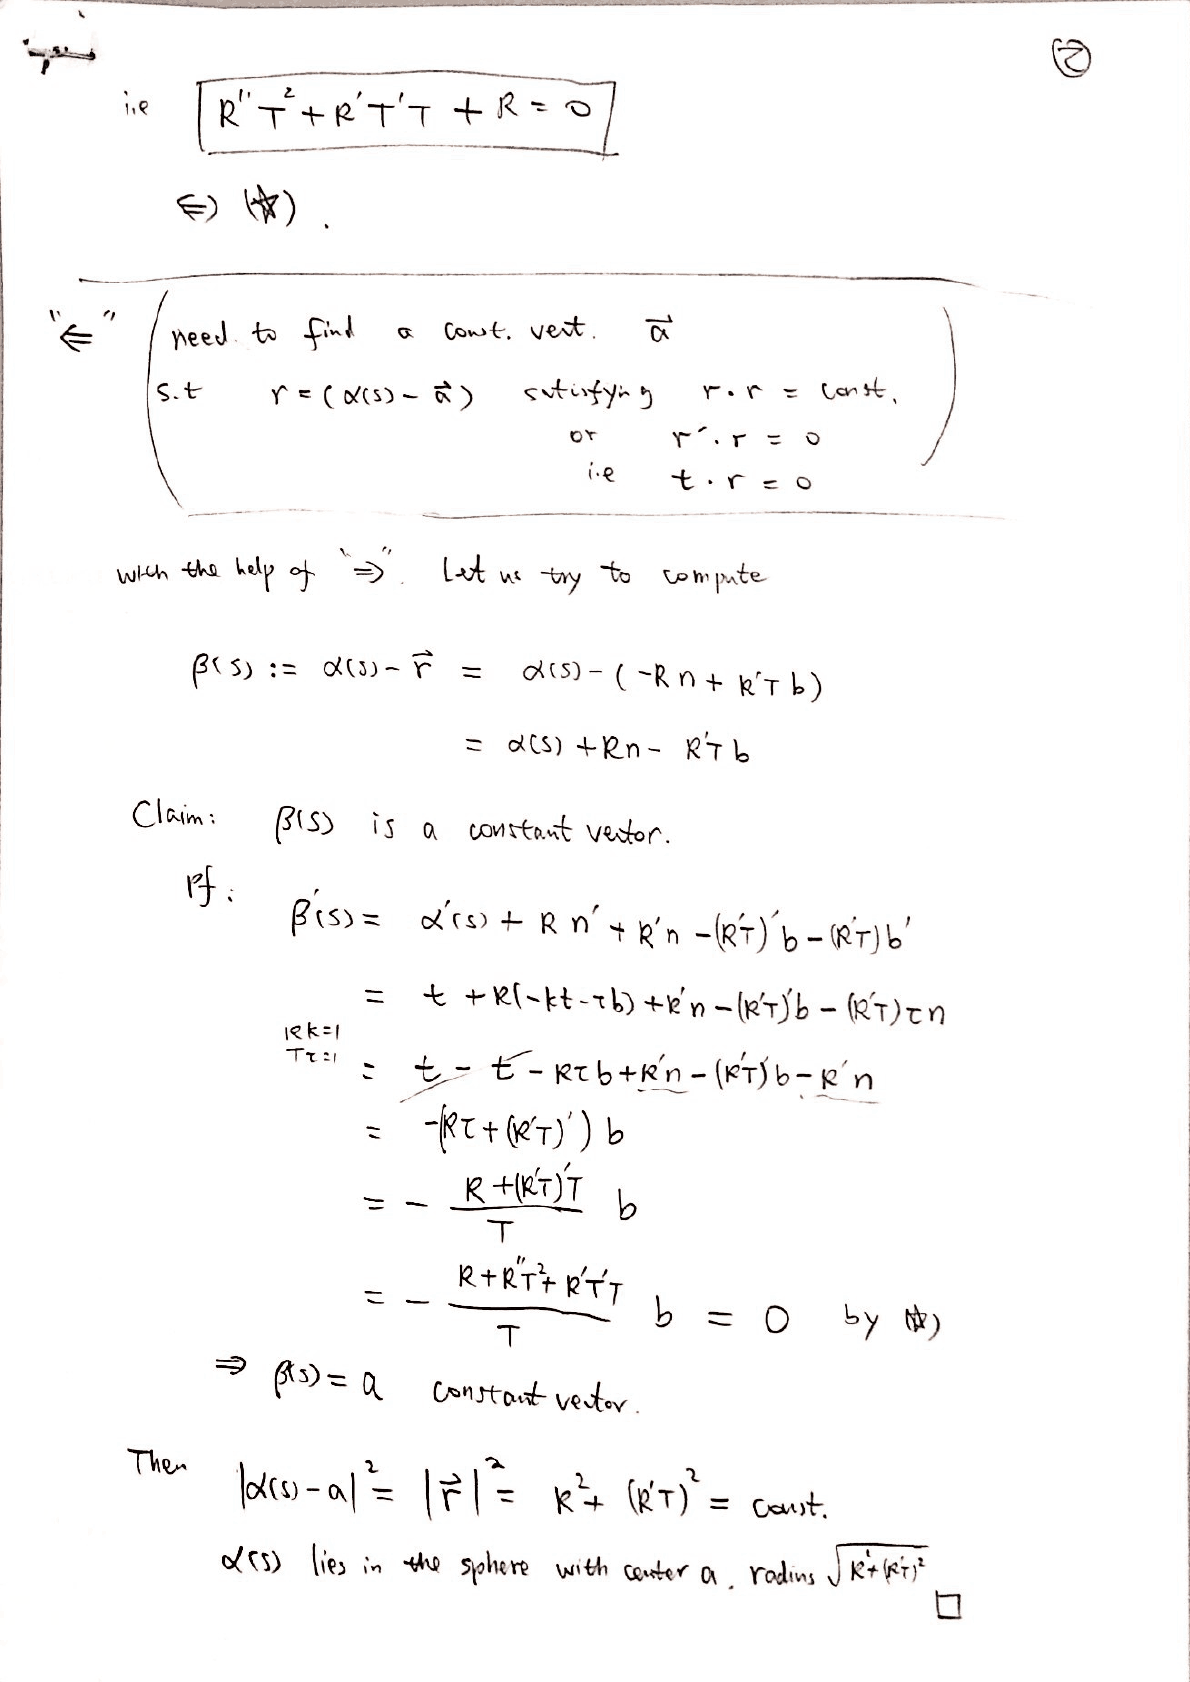 ②
i.e R''T² + R'T'T + R = 0
⇔ (☆).
"⇐" need to find a const. vect. a⃗
s.t r = (α(s) - a⃗) satisfying r·r = const,
or r'·r = 0
i.e t·r = 0
with the help of "⇒". Let us try to compute
β(s) := α(s) - r⃗ = α(s) - (-Rn + R'Tb)
= α(s) + Rn - R'Tb
Claim: β(s) is a constant vector.
Pf:
β'(s) = α'(s) + Rn' + R'n - (R'T)'b - (R'T)b'
= t + R(-kt - τb) + R'n - (R'T)'b - (R'T)τn
Rk=1
Tτ=1
= t - t - Rτb + R'n - (R'T)'b - R'n
= -(Rτ + (R'T)')b
= - (R + (R'T)'T)/T b
= - (R + R''T² + R'T'T)/T b = 0 by ☆)
⇒ β(s) = a constant vector.
Then |α(s) - a|² = |r⃗|² = R² + (R'T)² = const.
α(s) lies in the sphere with center a, radius √(R² + (R'T)²)
□